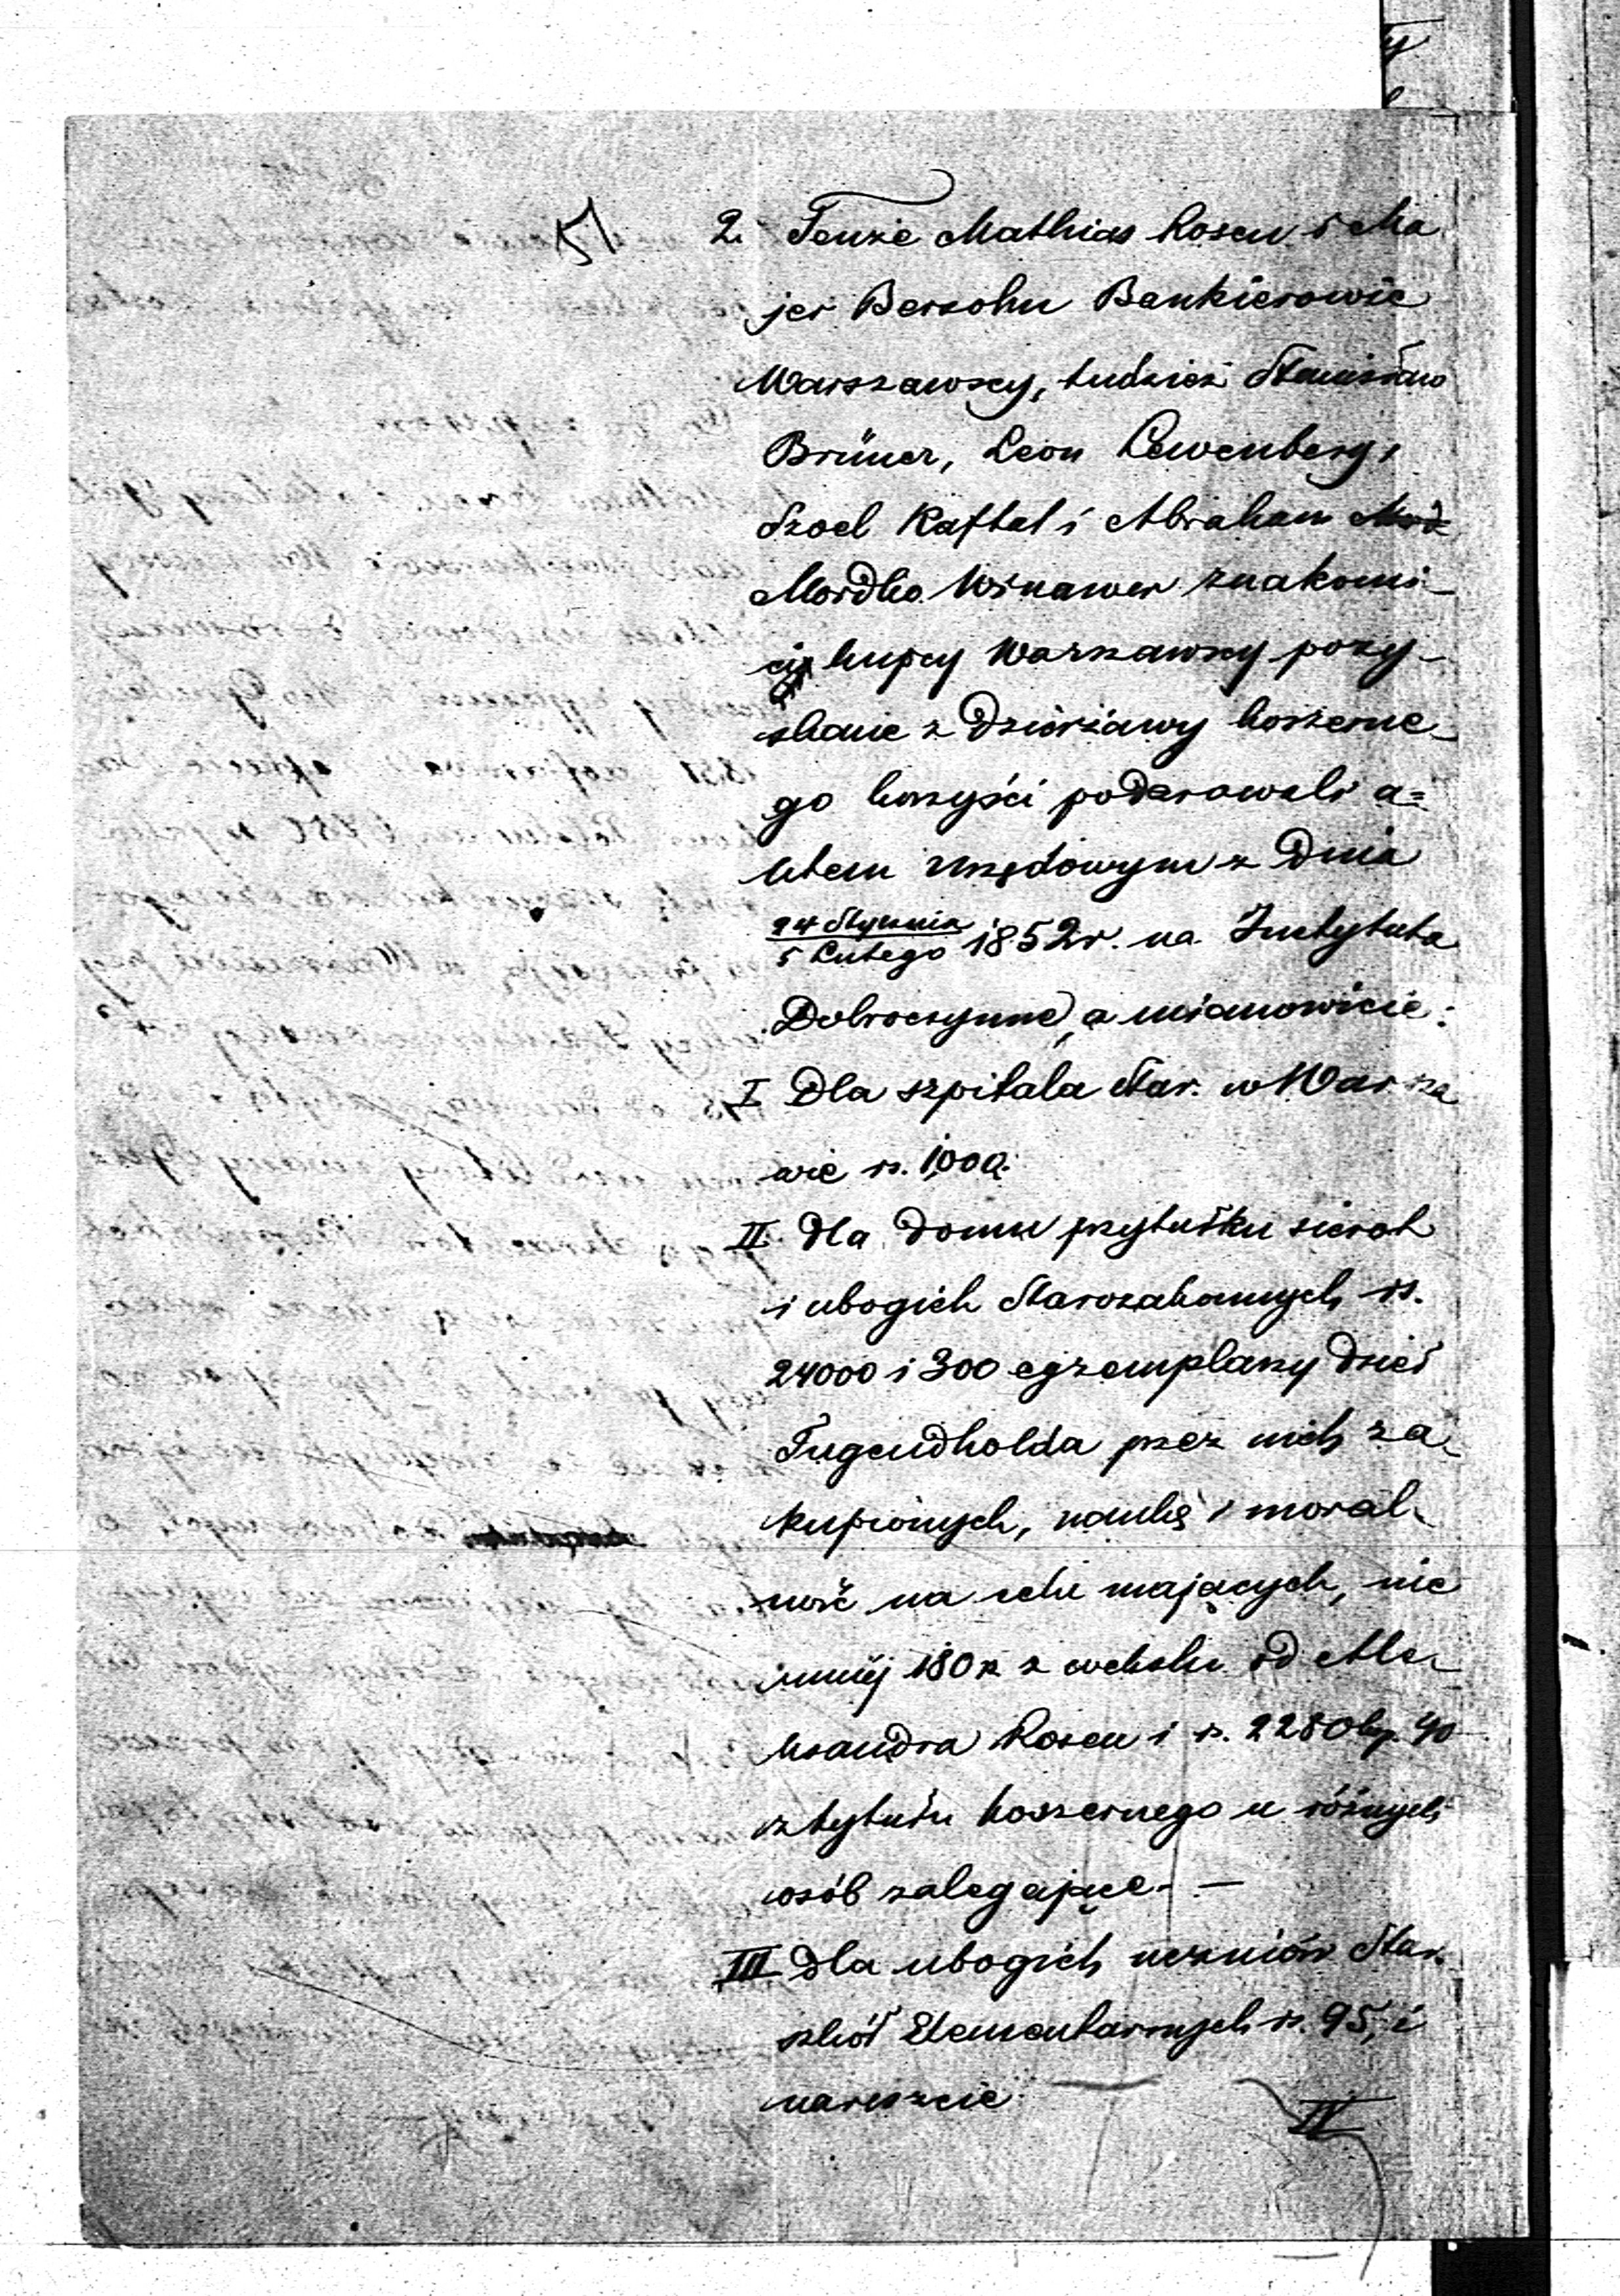 51
2. Tenże Mathias Rosen i Ma
jer Bersohn Bankierowie
Warszawscy, tudzież Stanisław
Brüner, Leon Lewenberg,
Szoel Kaftal i Abraham
Mordko Winawer znakomi-
ci kupcy Warszawscy pozy-
skane z Dzierżawy koszerne-
go korzyści podarowali a=
ktem urzędowym z Dnia
24 Stycznia
5 Lutego 1852 r. na Instytuta
Dobroczynne, a mianowicie:
I Dla szpitala Star. w Warsza
wie rs. 1000.
II dla Domu przytułku sierot
i ubogich Starozakonnych rs.
24000 i 300 egzemplarzy Dzieł
Tugendholda przez nich za-
kupionych, naukę i moral-
ność na celu mających, nie
mniej 180 r. z wekslu od Ale-
ksandra Rosen i rs. 2280 kp. 40
z tytułu koszernego u różnych
osób zalegające. —
III Dla ubogich uczniów Star.
szkół Elementarnych rs. 95, i
nareszcie
IV